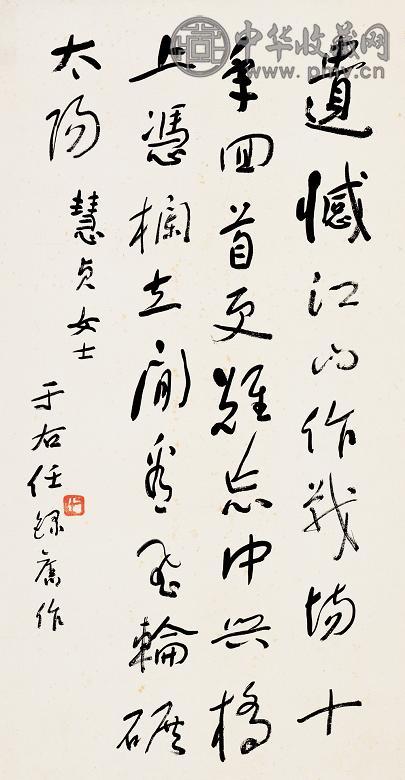 中华收藏网
遺憾江山作戰場十
年回首更難忘中興橋
上憑欄立閒看飛輪碾
太陽 慧貞女士
于右任錄舊作